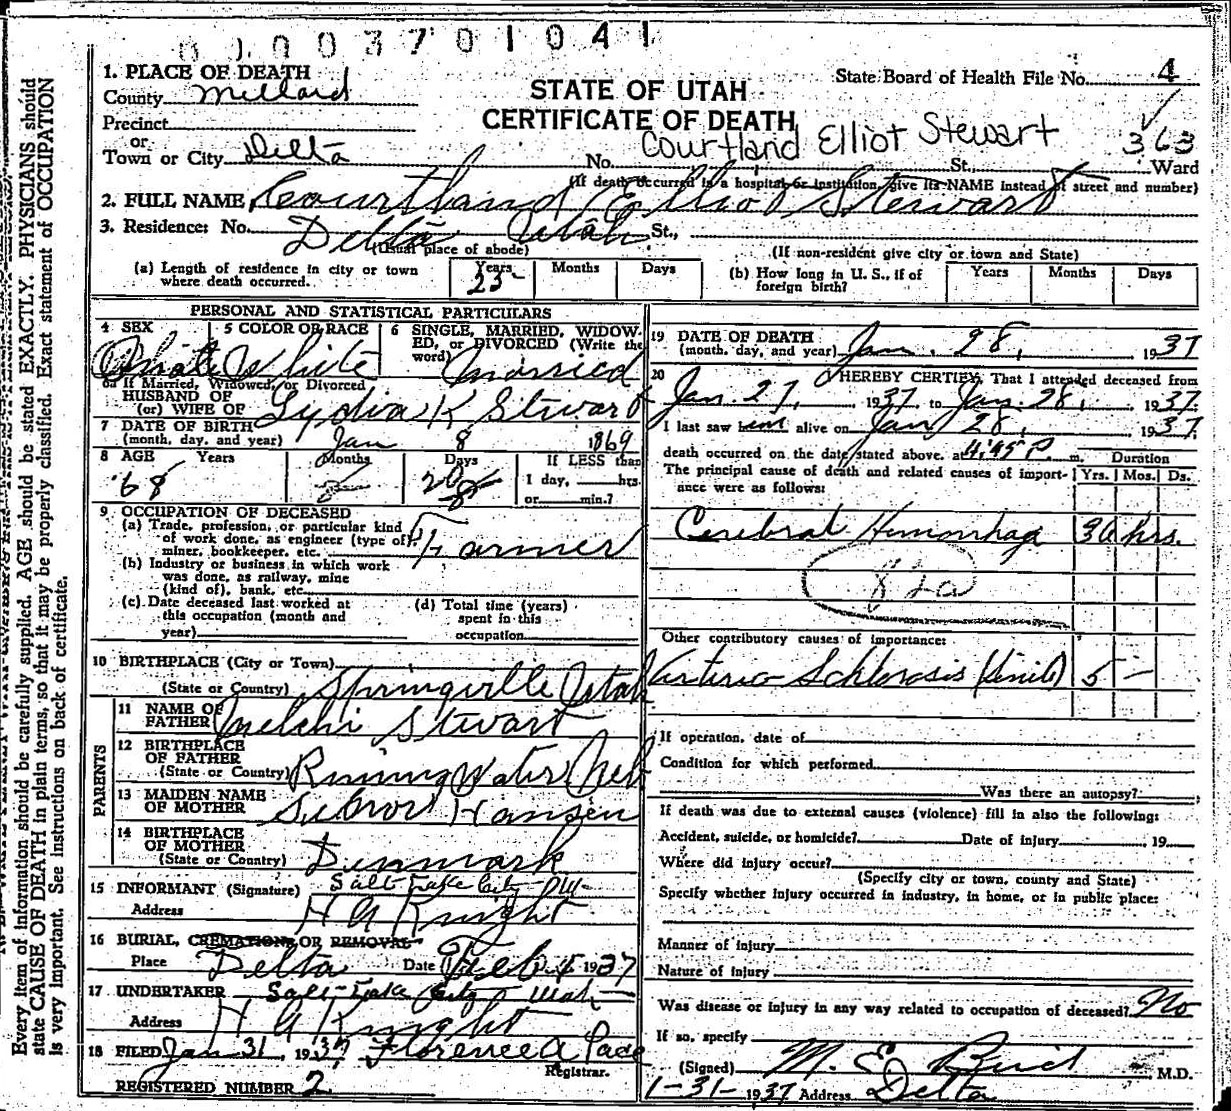 0 0 0 3 7 0 1 0 4 1
1. PLACE OF DEATH
County Millard
Precinct
or
Town or City Delta
STATE OF UTAH
CERTIFICATE OF DEATH
State Board of Health File No. 4
Courtland Elliot Stewart 363
No. St. Ward
(If death occurred in a hospital or institution, give its NAME instead of street and number)
2. FULL NAME Courtland Elliot Stewart
3. Residence: No. Delta Utah St.,
(Usual place of abode)
(If non-resident give city or town and State)
(a) Length of residence in city or town where death occurred. Years 25 Months Days
(b) How long in U. S., if of foreign birth? Years Months Days
PERSONAL AND STATISTICAL PARTICULARS
4 SEX
5 COLOR OR RACE White
6 SINGLE, MARRIED, WIDOWED, or DIVORCED (Write the word) Married
6a If Married, Widowed, or Divorced
HUSBAND OF
(or) WIFE OF Lydia K Stewart
7 DATE OF BIRTH
(month, day, and year) Jan 8 1869
8 AGE Years Months Days If LESS than
68 20 1 day, hrs.
or min.?
9 OCCUPATION OF DECEASED
(a) Trade, profession, or particular kind of work done, as engineer (type of), miner, bookkeeper, etc. Farmer
(b) Industry or business in which work was done, as railway, mine (kind of), bank, etc.
(c) Date deceased last worked at this occupation (month and year)
(d) Total time (years) spent in this occupation
10 BIRTHPLACE (City or Town)
(State or Country) Springville Utah
PARENTS
11 NAME OF FATHER Melchi Stewart
12 BIRTHPLACE OF FATHER
(State or Country) Running Water Neb
13 MAIDEN NAME OF MOTHER Hansen
14 BIRTHPLACE OF MOTHER
(State or Country) Denmark
15 INFORMANT (Signature) Salt Lake City
Address H A Knight
16 BURIAL, CREMATION, OR REMOVAL
Place Delta Date Feb 1937
17 UNDERTAKER Salt Lake City Utah
Address H A Knight
18 FILED Jan 31, 1937 Florence A Pace
Registrar.
REGISTERED NUMBER 2
19 DATE OF DEATH
(month, day, and year) Jan. 28, 1937
20 I HEREBY CERTIFY, That I attended deceased from
Jan. 27, 1937 to Jan. 28, 1937
I last saw him alive on Jan 28, 1937
death occurred on the date stated above, at 4:45 P m. Duration
The principal cause of death and related causes of importance were as follows: Yrs. Mos. Ds.
Cerebral Hemorrhag 36 hrs.
82a
Other contributory causes of importance:
Arterio Schlerosis (Senile) 5 -
If operation, date of
Condition for which performed
Was there an autopsy?
If death was due to external causes (violence) fill in also the following:
Accident, suicide, or homicide? Date of injury 19
Where did injury occur?
(Specify city or town, county and State)
Specify whether injury occurred in industry, in home, or in public place:
Manner of injury
Nature of injury
Was disease or injury in any way related to occupation of deceased? No
If so, specify
(Signed) M. E. Bird M.D.
1-31-1937 Address Delta
Every item of information should be carefully supplied. AGE should be stated EXACTLY. PHYSICIANS should
state CAUSE OF DEATH in plain terms, so that it may be properly classified. Exact statement of OCCUPATION
is very important. See instructions on back of certificate.